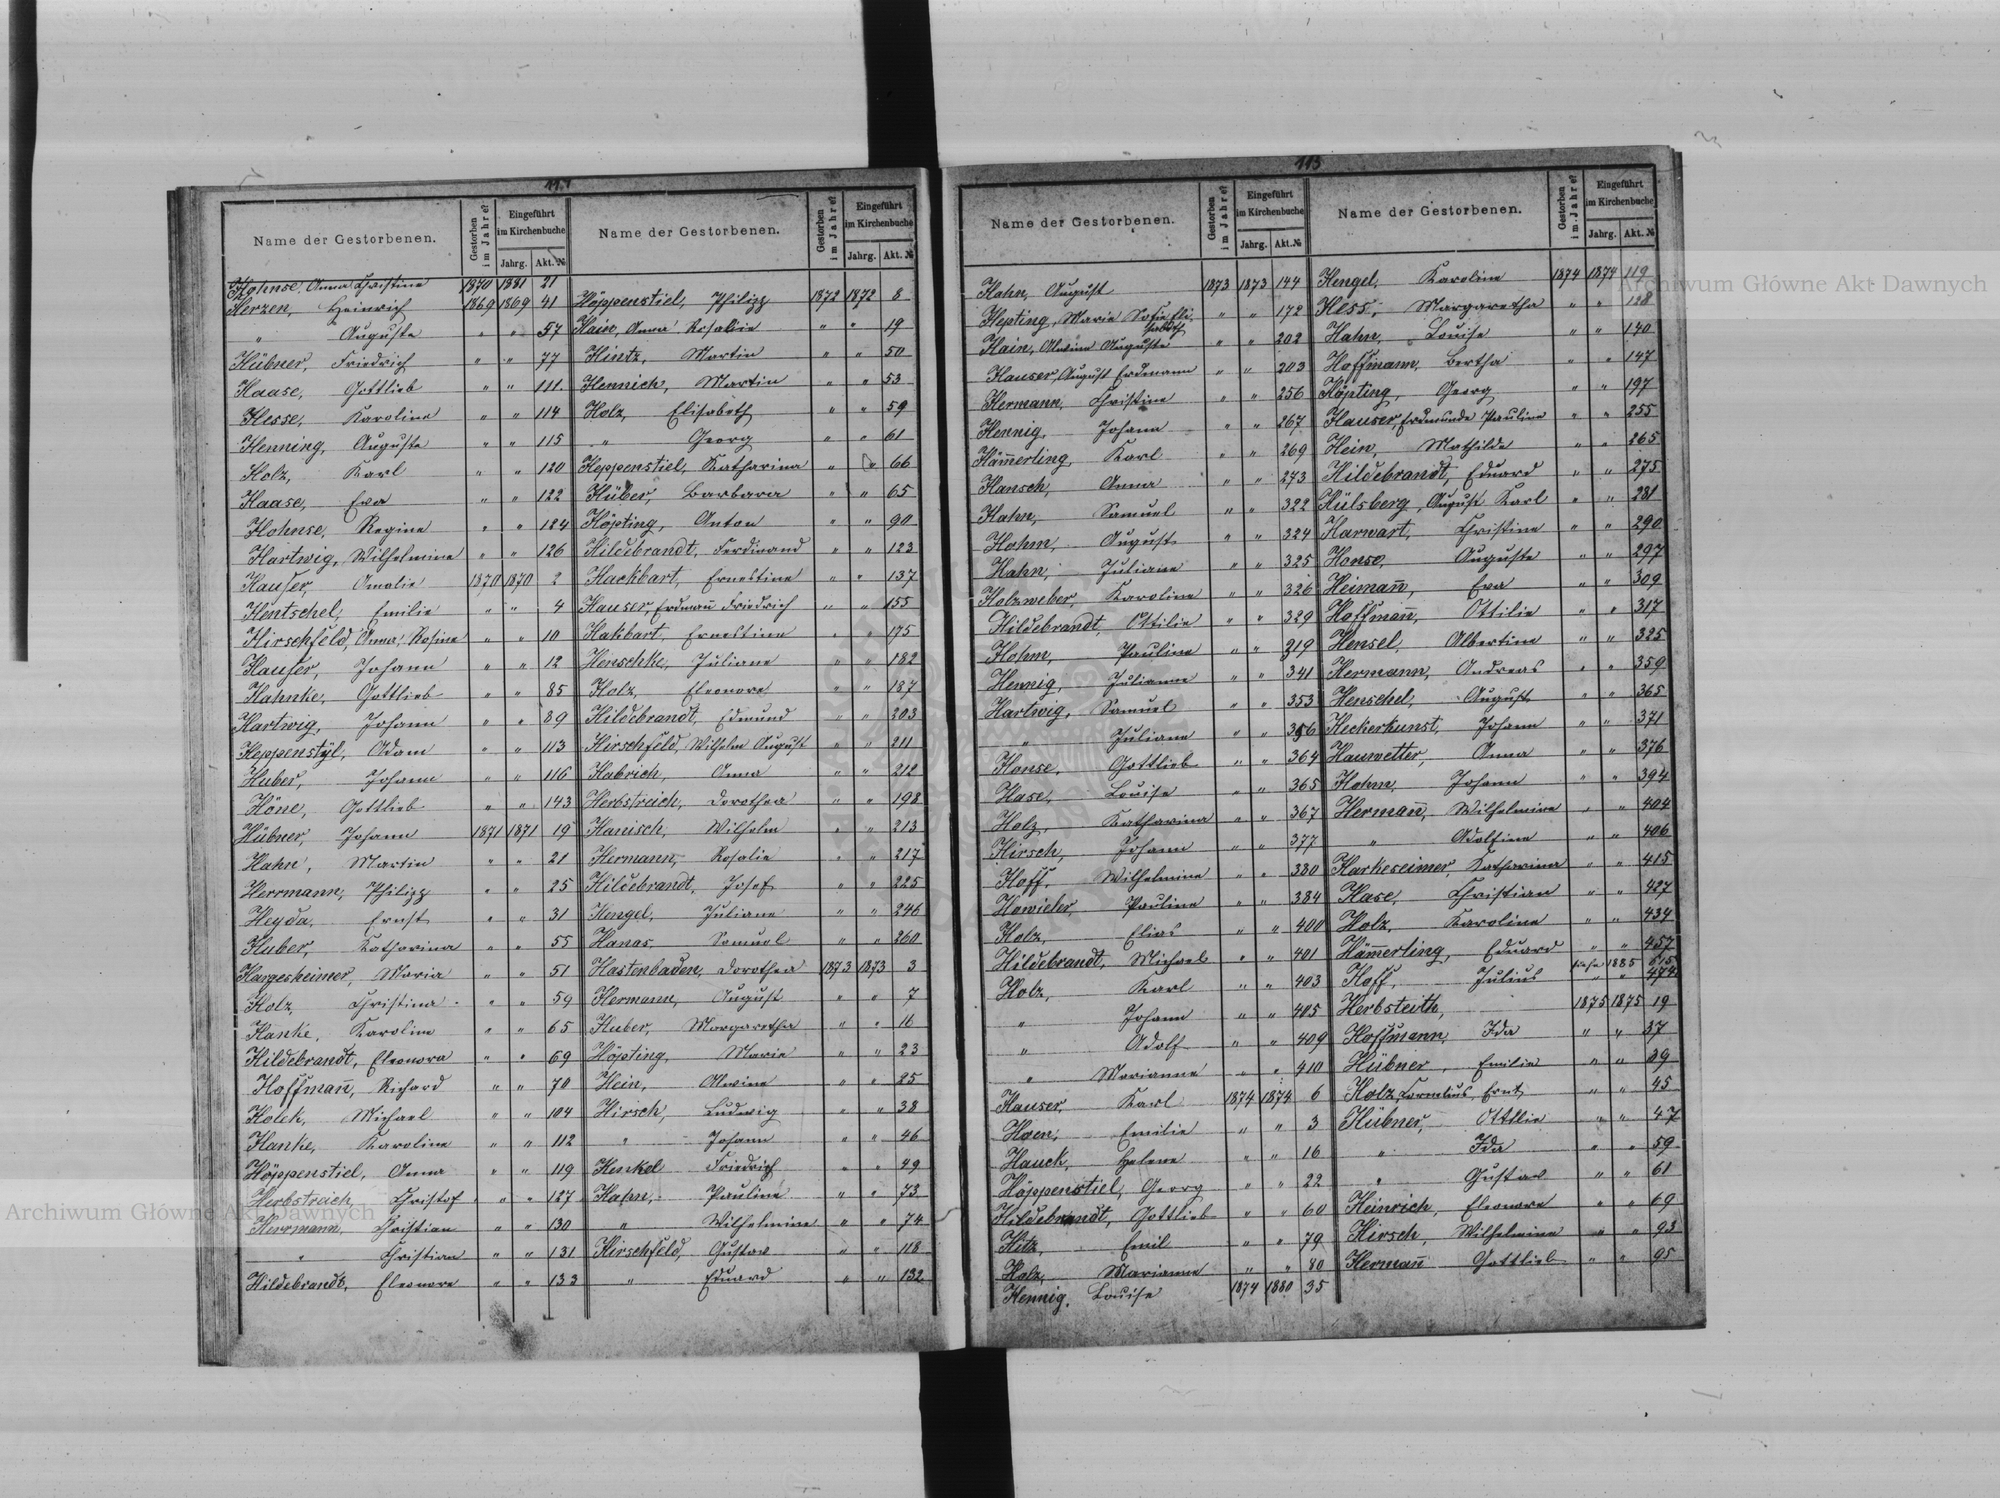 111
Name der Gestorbenen. Gestorben im Jahre? Eingeführt im Kirchenbuche Jahrg. Akt. №
Hohnse, Anna Christine 1870 1881 21
Herzen, Heinrich 1869 1869 41
" Auguste " " 57
Hübner, Friedrich " " 77
Haase, Gottlieb " " 111
Hesse, Karoline " " 114
Henning, Auguste " " 115
Holz, Karl " " 120
Haase, Eva " " 122
Hohnse, Regine " " 124
Hartwig, Wilhelmine " " 126
Hauser, Amalie 1870 1870 2
Hentschel, Emilie " " 4
Hirschfeld, Anna Rosine " " 10
Hauser, Johann " " 12
Hahnke, Gottlieb " " 85
Hartwig, Johann " " 89
Heppenstyl, Adam " " 113
Huber, Johann " " 116
Höne, Gottlieb " " 143
Hübner, Johann 1871 1871 19
Hahn, Martin " " 21
Herrmann, Philipp " " 25
Heyda, Ernst " " 31
Huber, Katharina " " 55
Hargesheimer, Maria " " 51
Holz, Christina " " 59
Hanke, Karoline " " 65
Hildebrandt, Eleonora " " 69
Hoffman̄, Richard " " 70
Michael " " 104
Hanke, Karoline " " 112
Höppenstiel, Anna " " 119
Herbstreich, Christof " " 127
Herrmann, Christian " " 130
" Christian " " 131
Hildebrandt, Eleonore " " 133
Name der Gestorbenen. Gestorben im Jahre? Eingeführt im Kirchenbuche Jahrg. Akt. №
Höppenstiel, Philipp 1872 1872 8
Hain, Anna Rosalie " " 19
Hintz, Martin " " 50
Hennich, Martin " " 53
Holz, Elisabeth " " 59
" Georg " " 61
Heppenstiel, Katharina " " 66
Hüber, Barbara " " 65
Höpting, Anton " " 90
Hildebrandt, Ferdinand " " 123
Hackbart, Ernestine " " 137
Hauser, Erdman̄ Friedrich " " 155
Hakbart, Ernestine " " 175
Henschke, Juliane " " 182
Holz, Eleonore " " 187
Hildebrandt, Edmund " " 203
Hirschfeld, Wilhelm August " " 211
Habrich, Anna " " 212
Herbstreich, Dorothea " " 198
Hanisch, Wilhelm " " 213
Hermann, Rosalie " " 217
Hildebrandt, Josef " " 225
Hengel, Juliane " " 246
Hanas, Samuel " " 260
Hastenbaden, Dorothea 1873 1873 3
Hermann, August " " 7
Huber, Margaretha " " 16
Höpting, Marie " " 23
Hein, Alwine " " 25
Hirsch, Ludwig " " 38
" Johann " " 46
Henkel Friedrich " " 49
Hahn, Pauline " " 73
" Wilhelmine " " 74
Hirschfeld, Gustav " " 118
" Eduard " " 132
113
Name der Gestorbenen. Gestorben im Jahre? Eingeführt im Kirchenbuche Jahrg. Akt. №
Hahn, August 1873 1873 144
Hepting, Marie Sofie Elisabeth " " 172
Hain, Alwine Auguste " " 202
Hauser, August Erdmann " " 203
Hermann, Christine " " 256
Hennig, Johann " " 267
Häm̄erling, Karl " " 269
Hansch, Anna " " 273
Hahn, Samuel " " 322
Hohm, August " " 324
Hahn, Juliane " " 325
Holzweber, Karoline " " 326
Hildebrandt, Ottilie " " 329
Hohm, Pauline " " 319
Hennig, Julianne " " 341
Hartwig, Samuel " " 353
" Juliane " " 356
Honse, Gottlieb " " 364
Hase, Louise " " 365
Holz, Katharina " " 367
Hirsch, Johann " " 377
Hoff, Wilhelmine " " 380
Howieler, Pauline " " 384
Holz, Elias " " 400
Hildebrandt, Michael " " 401
Holz, Karl " " 403
" Johann " " 405
" Adolf " " 409
" Marianne " " 410
Hauser, Karl 1874 1874 6
Hoen, Emilie " " 3
Hauck, Helene " " 16
Höppenstiel, Georg " " 22
Hildebrandt, Gottlieb " " 60
Hitz, Emil " " 79
Holz, Marianne " " 80
Hennig, Louise 1874 1880 35
Name der Gestorbenen. Gestorben im Jahre? Eingeführt im Kirchenbuche Jahrg. Akt. №
Hengel, Karoline 1874 1874 119
Hess, Margaretha " " 128
Hahn, Louise " " 140
Hoffmann, Bertha " " 147
Höpting, Georg " " 197
Hauser Erdmunde Pauline " " 255
Hein, Mathilde " " 265
Hildebrandt, Eduard " " 275
Hülsberg, August Karl " " 281
Harwart, Christine " " 290
Honse, Auguste " " 297
Heiman̄, Eva " " 309
Hoffman̄, Ottilie " " 317
Hensel, Albertine " " 325
Hermann, Andreas " " 359
Henschel, August " " 365
Heckerkunst, Johann " " 371
Hauwetter, Anna " " 376
Hohn, Johann " " 394
Herman̄, Wilhelmine " " 404
" Adolfine " " 406
Harkeseimer, Katharina " " 415
Hase, Christian " " 427
Holz, Karoline " " 434
Häm̄erling, Eduard " " 457
Hoff, Julius " " 474
siehe 1885
Herbsteith, 1875 1875 19
Hoffmann, Ida " " 37
Hübner, Emilie " " 39
Holz, Cornelius, Ernt " " 45
Hübner, Ottilie " " 47
" Ida " " 59
" Gustav " " 61
Heinrich, Eleonore " " 69
Hirsch, Wilhelmine " " 93
Herman̄ Gottlieb " " 95
Archiwum Główne Akt Dawnych
Archiwum Główne Akt Dawnych